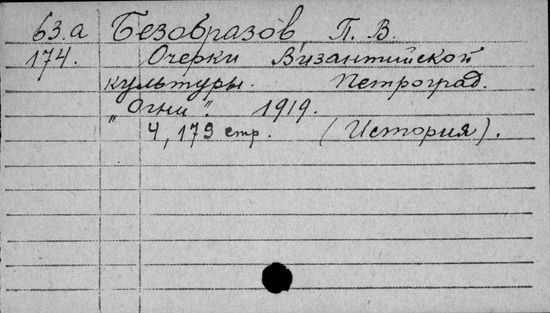 63.a Безобразов, П. В.
174. Очерки Византийской
культуры. Петроград.
„Огни". 1919.
4, 179 стр. (История).